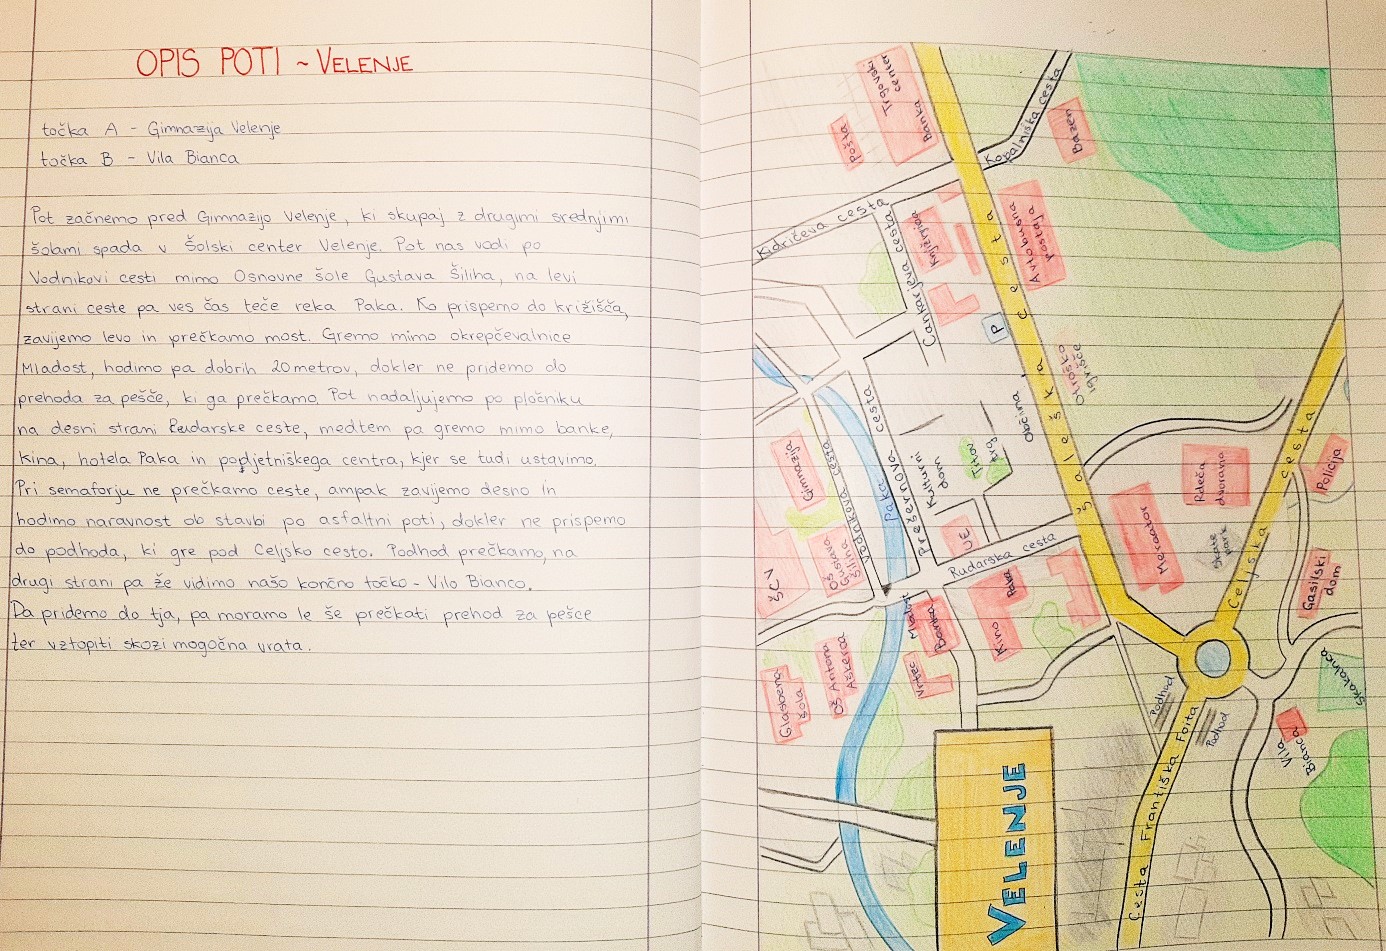 OPIS POTI ~ VELENJE
točka A - Gimnazija Velenje
točka B - Vila Bianca
Pot začnemo pred Gimnazijo Velenje, ki skupaj z drugimi srednjimi
šolami spada v Šolski center Velenje. Pot nas vodi po
Vodnikovi cesti mimo Osnovne šole Gustava Šiliha, na levi
strani ceste pa ves čas teče reka Paka. Ko prispemo do križišča,
zavijemo levo in prečkamo most. Gremo mimo okrepčevalnice
Mladost, hodimo pa dobrih 20 metrov, dokler ne pridemo do
prehoda za pešče, ki ga prečkamo. Pot nadaljujemo po pločniku
na desni strani Rudarske ceste, medtem pa gremo mimo banke,
kina, hotela Paka in podjetniškega centra, kjer se tudi ustavimo.
Pri semaforju ne prečkamo ceste, ampak zavijemo desno in
hodimo naravnost ob stavbi po asfaltni poti, dokler ne prispemo
do podhoda, ki gre pod Celjsko cesto. Podhod prečkamo, na
drugi strani pa že vidimo našo končno točko - Vilo Bianco.
Da pridemo do tja, pa moramo le še prečkati prehod za pešce
ter vztopiti skozi mogočna vrata.
Trgovski
center
Banka
Pošta
Kopalniška cesta
Bazen
Kidričeva cesta
Cankarjeva cesta
Knjižnica
Avtobusna
postaja
P
Šaleška cesta
Otroško
igrišče
Občina
Titov
trg
Kulturni
dom
Prešernova cesta
Paka
Vodnikova cesta
Gimnazija
OŠ
Gustava
Šiliha
ŠCV
UE
Rudarska cesta
Mercator
Rdeča
dvorana
Skate
park
Celjska cesta
Policija
Gasilski
dom
Mladost
Banka
Kino
Paka
Vrtec
OŠ Antona
Aškerca
Glasbena
šola
Skakalnica
Podhod
Podhod
Vila
Bianca
Cesta Františka Foita
VELENJE